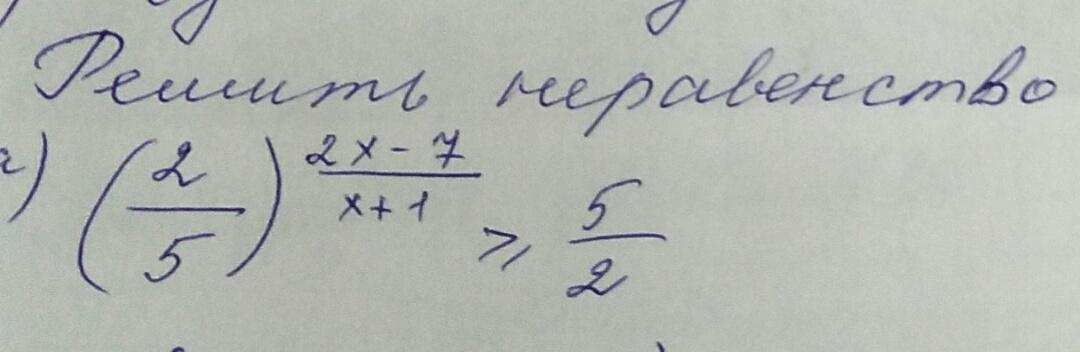 Решить неравенство
г) (2/5)^((2x-7)/(x+1)) ⩾ 5/2